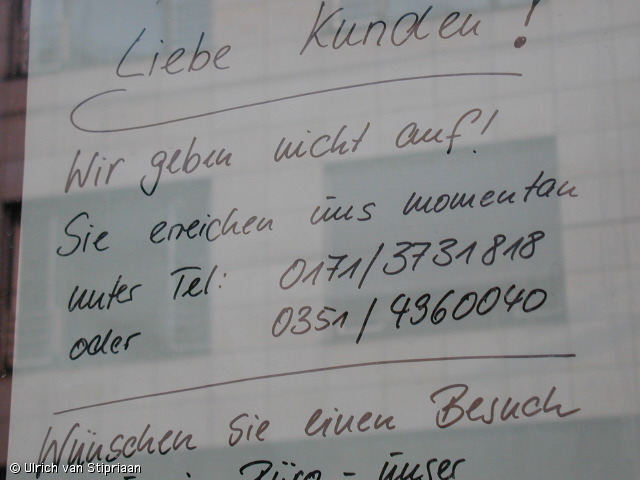 Liebe Kunden!
Wir geben nicht auf!
Sie erreichen uns momentan
unter Tel: 0171/3731818
oder 0351/4960040
Wünschen Sie einen Besuch
Büro - unser
© Ulrich van Stipriaan